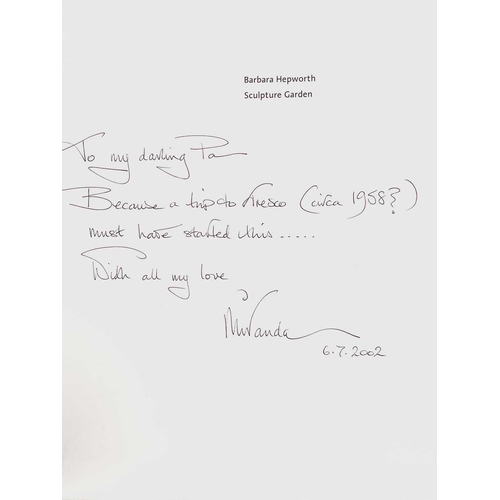 Barbara Hepworth
Sculpture Garden
To my darling Pa
Because a trip to Tresco (circa 1958?)
must have started this.....
With all my love
Miranda
6.7.2002